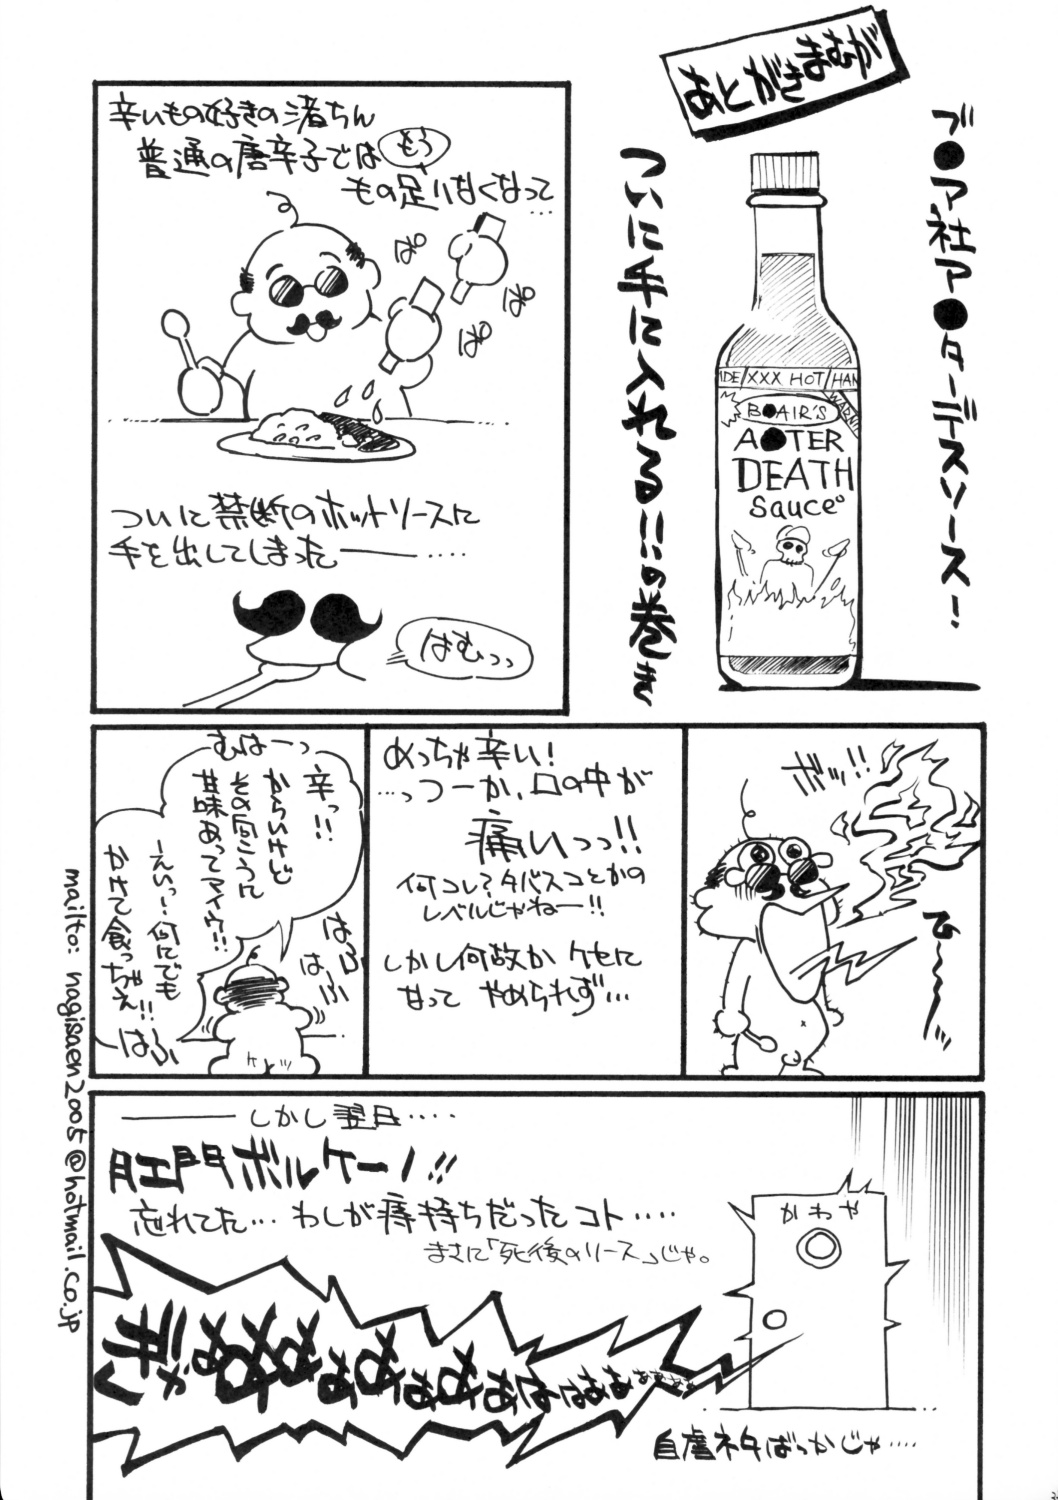 あとがきまむが
ブ●ア社ア●ターデスソース!
ついに手に入れる!!の巻き
IDE/XXX HOT/HAN
WARNIN
B●AIR'S
A●TER
DEATH
Sauce
辛いもの好きの渚ちん
普通の唐辛子ではもう
もの足りなくなって…
ぱ
ぱ
ぱ
ぱ
ついに禁断のホットソースに
手を出してしまった――……
はむっっ
ボッ!!
ひ〜〜〜ッ
めっちゃ辛い!
…っつーか、口の中が
痛いっっ!!
何コレ?タバスコとかの
レベルじゃねー!!
しかし何故かクセに
なって やめられず…
むはーっ
辛っ!!
からいけど
その向こうに
甘味あってマイウ!!
ーえいっ、何にでも
かけて食っちゃえ!!
はふ
はふ
はふ
――しかし翌日……
肛門ボルケーノ!!
忘れてた… わしが痔持ちだったコト……
まさに「死後のソース」じゃ。
かわや
自虐ネタばっかじゃ……
mailto: nagisaen2005@hotmail.co.jp